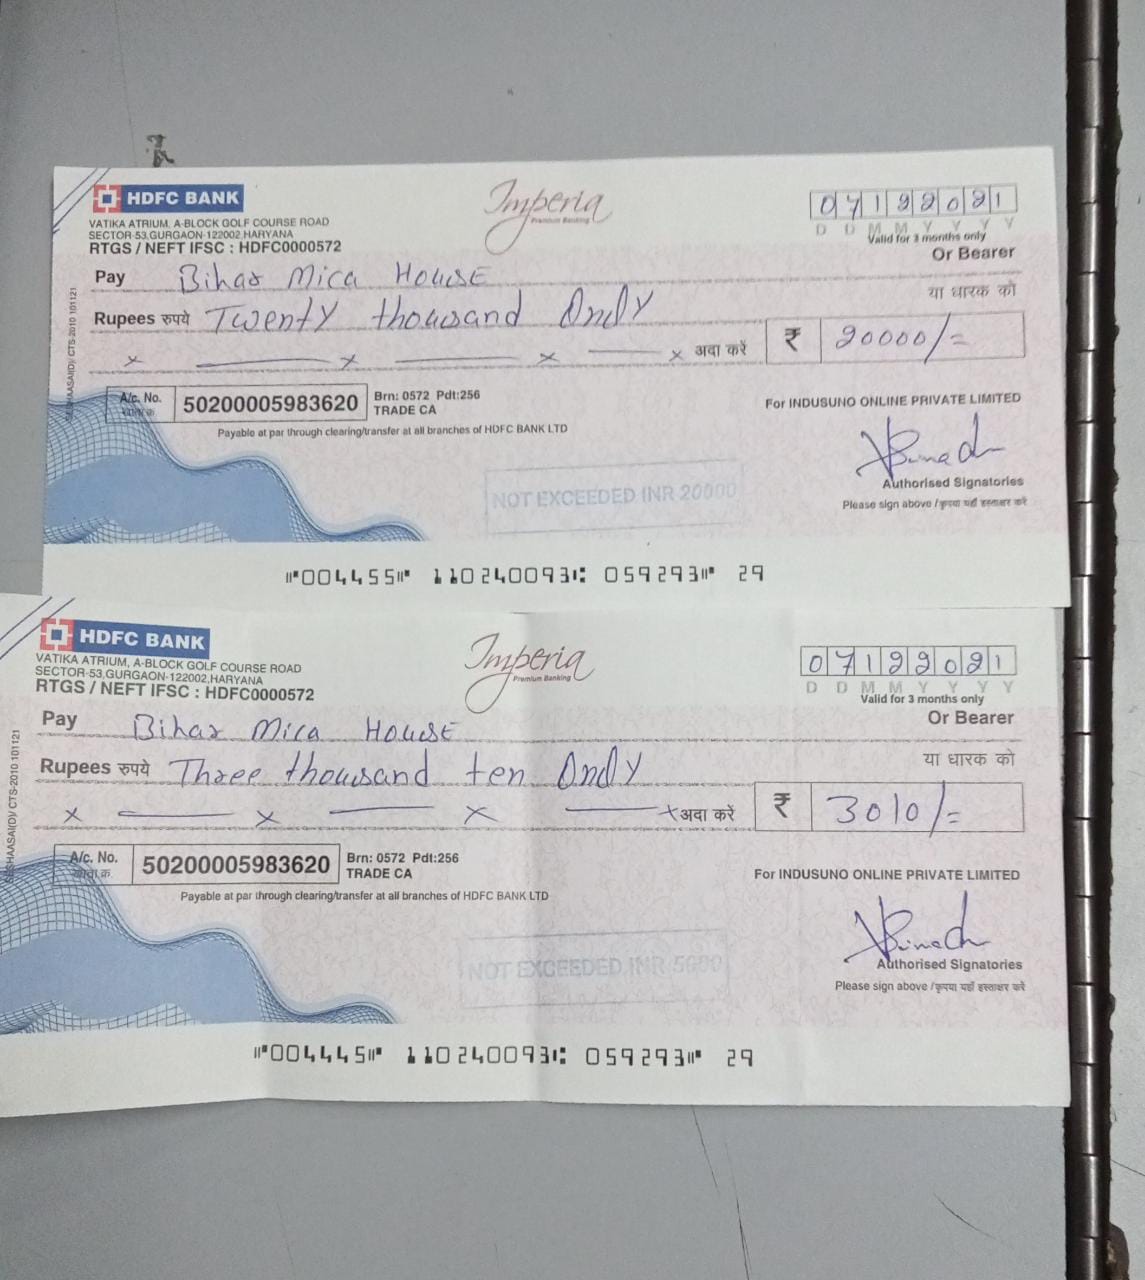 HDFC BANK
VATIKA ATRIUM, A-BLOCK GOLF COURSE ROAD
SECTOR-53,GURGAON-122002,HARYANA
RTGS / NEFT IFSC : HDFC0000572
Imperia
Premium Banking
07122021
D D M M Y Y Y Y
Valid for 3 months only
Or Bearer
Pay Bihar Mica House
या धारक को
Rupees रुपये Twenty thousand Only
अदा करें ₹ 20000/=
A/c. No. 50200005983620 Brn: 0572 Pdt:256
TRADE CA
Payable at par through clearing/transfer at all branches of HDFC BANK LTD
For INDUSUNO ONLINE PRIVATE LIMITED
NOT EXCEEDED INR 20000
Authorised Signatories
Please sign above / कृपया यहाँ हस्ताक्षर करें
CTS-2010 101121
⑈004455⑈ 110240093⑆ 059293⑈ 29
HDFC BANK
VATIKA ATRIUM, A-BLOCK GOLF COURSE ROAD
SECTOR-53,GURGAON-122002,HARYANA
RTGS / NEFT IFSC : HDFC0000572
Imperia
Premium Banking
07122021
D D M M Y Y Y Y
Valid for 3 months only
Or Bearer
Pay Bihar Mica House
या धारक को
Rupees रुपये Three thousand ten Only
अदा करें ₹ 3010/=
A/c. No. 50200005983620 Brn: 0572 Pdt:256
खाता क्र. TRADE CA
Payable at par through clearing/transfer at all branches of HDFC BANK LTD
For INDUSUNO ONLINE PRIVATE LIMITED
NOT EXCEEDED INR 5000
Authorised Signatories
Please sign above / कृपया यहाँ हस्ताक्षर करें
CTS-2010 101121
⑈004445⑈ 110240093⑆ 059293⑈ 29